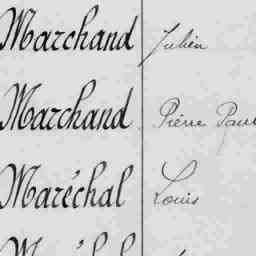 Marchand Julien
Marchand Pierre Paul
Maréchal Louis